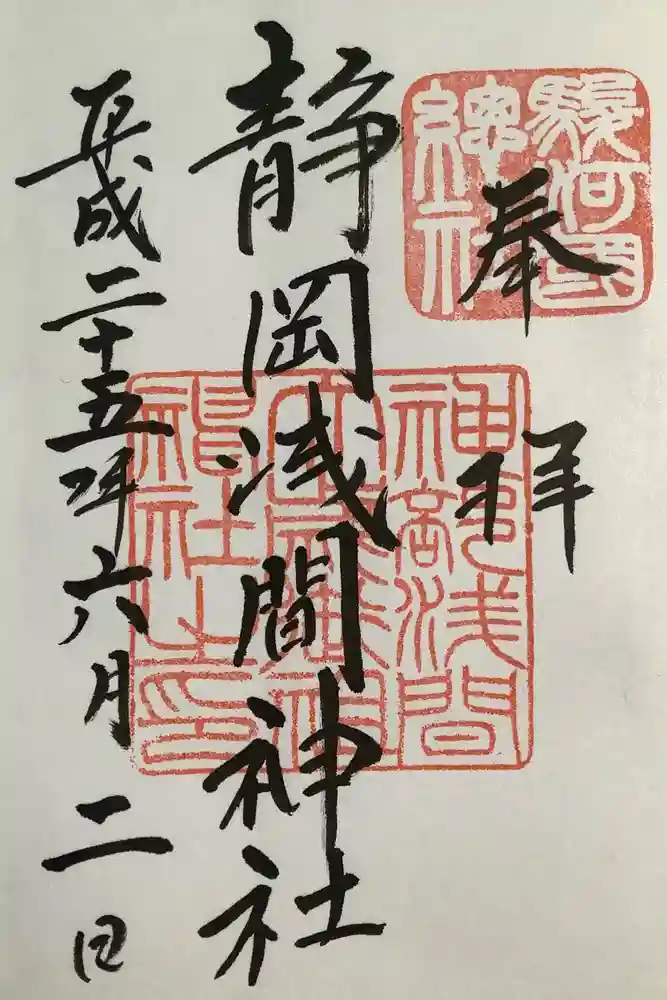 駿河國
總社
奉拝
静岡浅間神社
神部浅間
平成二十五年六月二日